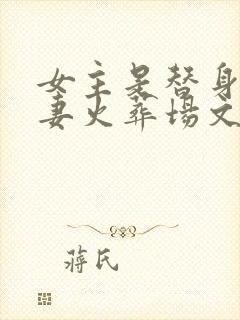 女主是替身
妻火葬场文
蒋氏